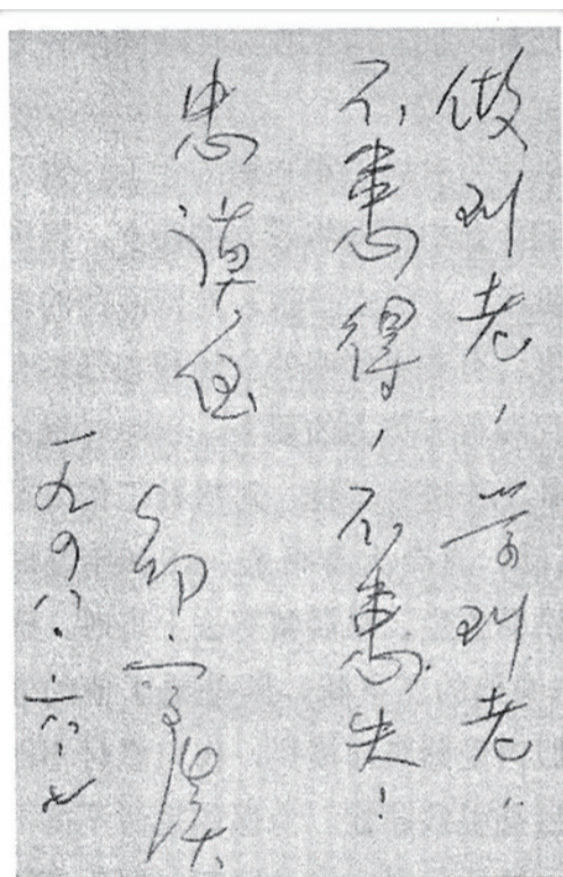 做到老，学到老，
不患得，不患失！
忠谟侄
一九四八.六.七